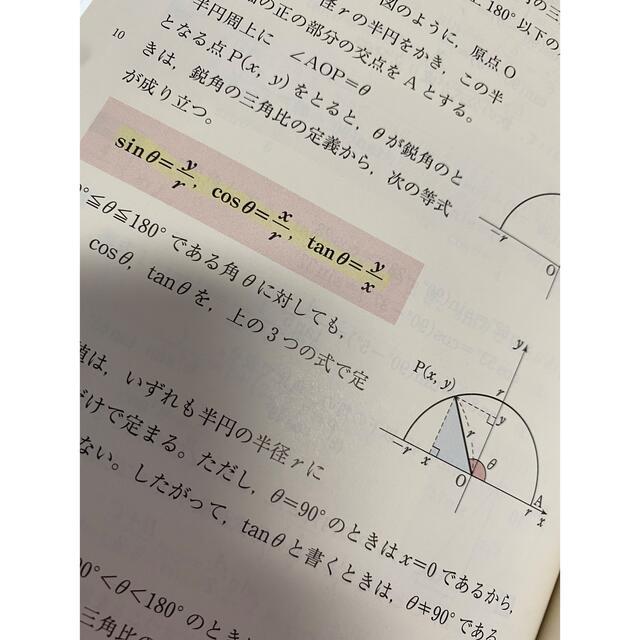 180°以下の
図のように，原点O
径rの半円をかき，この半
の正の部分の交点をAとする。
半円周上に ∠AOP=θ
10
となる点P(x, y)をとると，θが鋭角のと
きは，鋭角の三角比の定義から，次の等式
が成り立つ。
sinθ=y/r, cosθ=x/r, tanθ=y/x
°≦θ≦180°である角θに対しても，
cosθ, tanθを，上の3つの式で定
値は，いずれも半円の半径rに
だけで定まる。ただし，θ=90°のときはx=0であるから，
ない。したがって，tanθと書くときは，θ≠90°である
0°<θ<180°のとき
三角比の
-r
O
y
P(x, y)
r
y
r
θ
-r
x
O
A
r
x